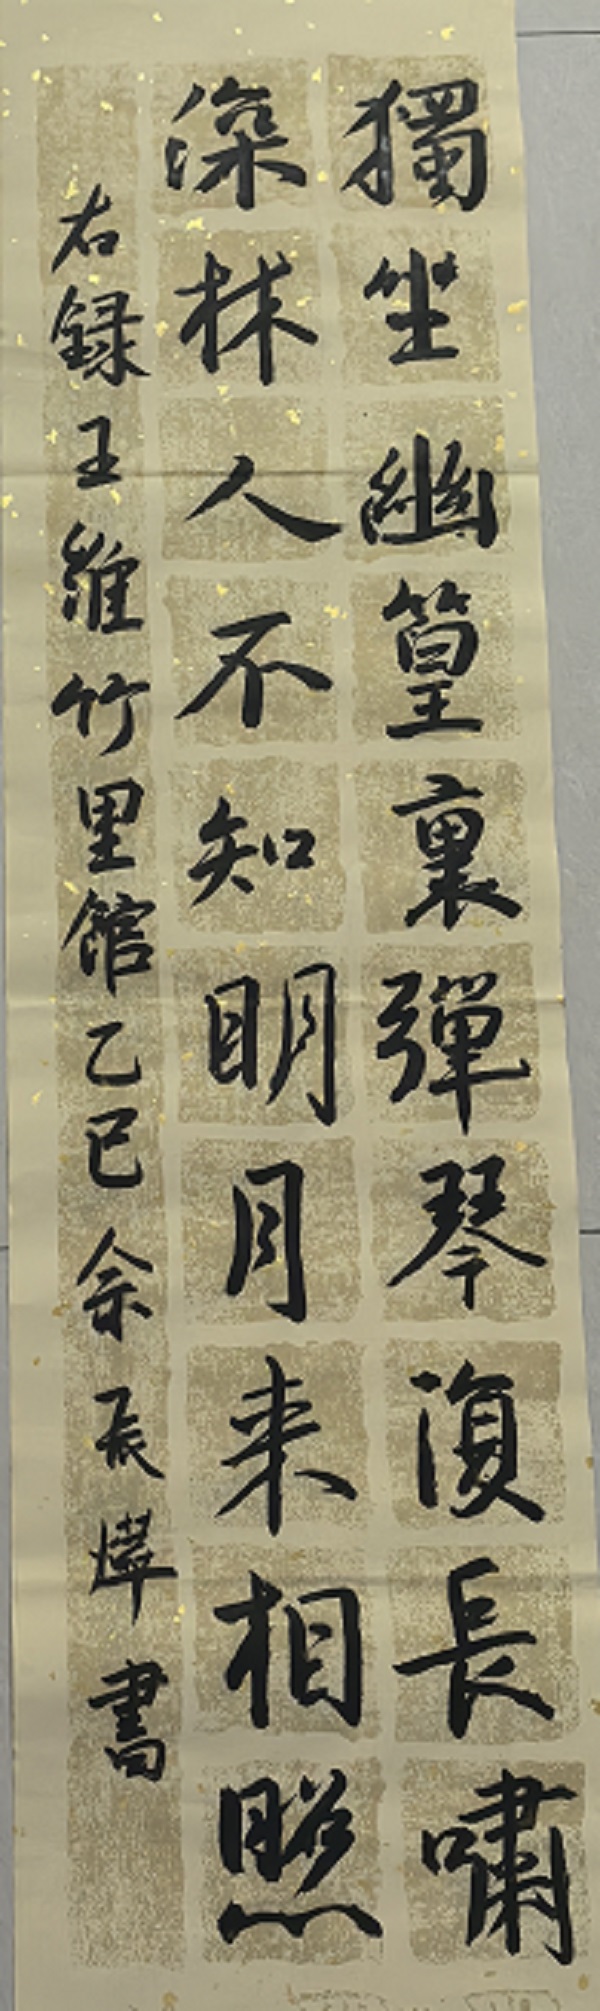 獨坐幽篁裏彈琴復長嘯
深林人不知明月来相照
右録王維竹里館乙巳佘辰煒書